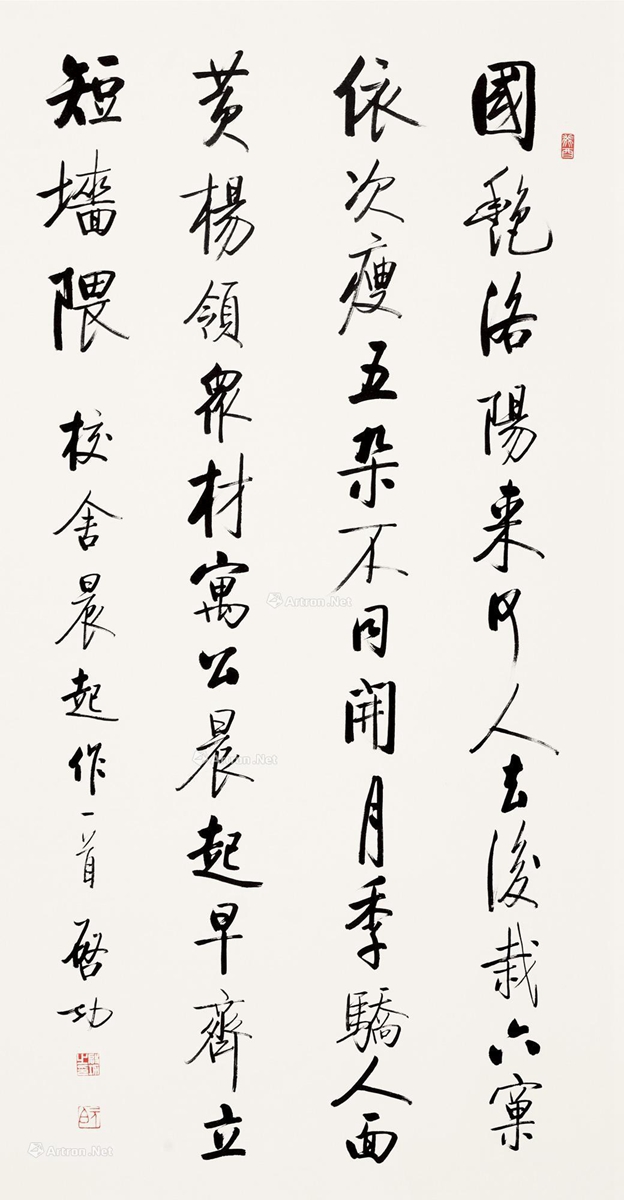 國艷洛陽来何人去後栽六窠
依次瘦五朵不同開月季驕人面
黄楊領眾材寓公晨起早齊立
短墻隈 校舍晨起作一首 啓功
Artron.Net
Artron.Net
Artron.Net